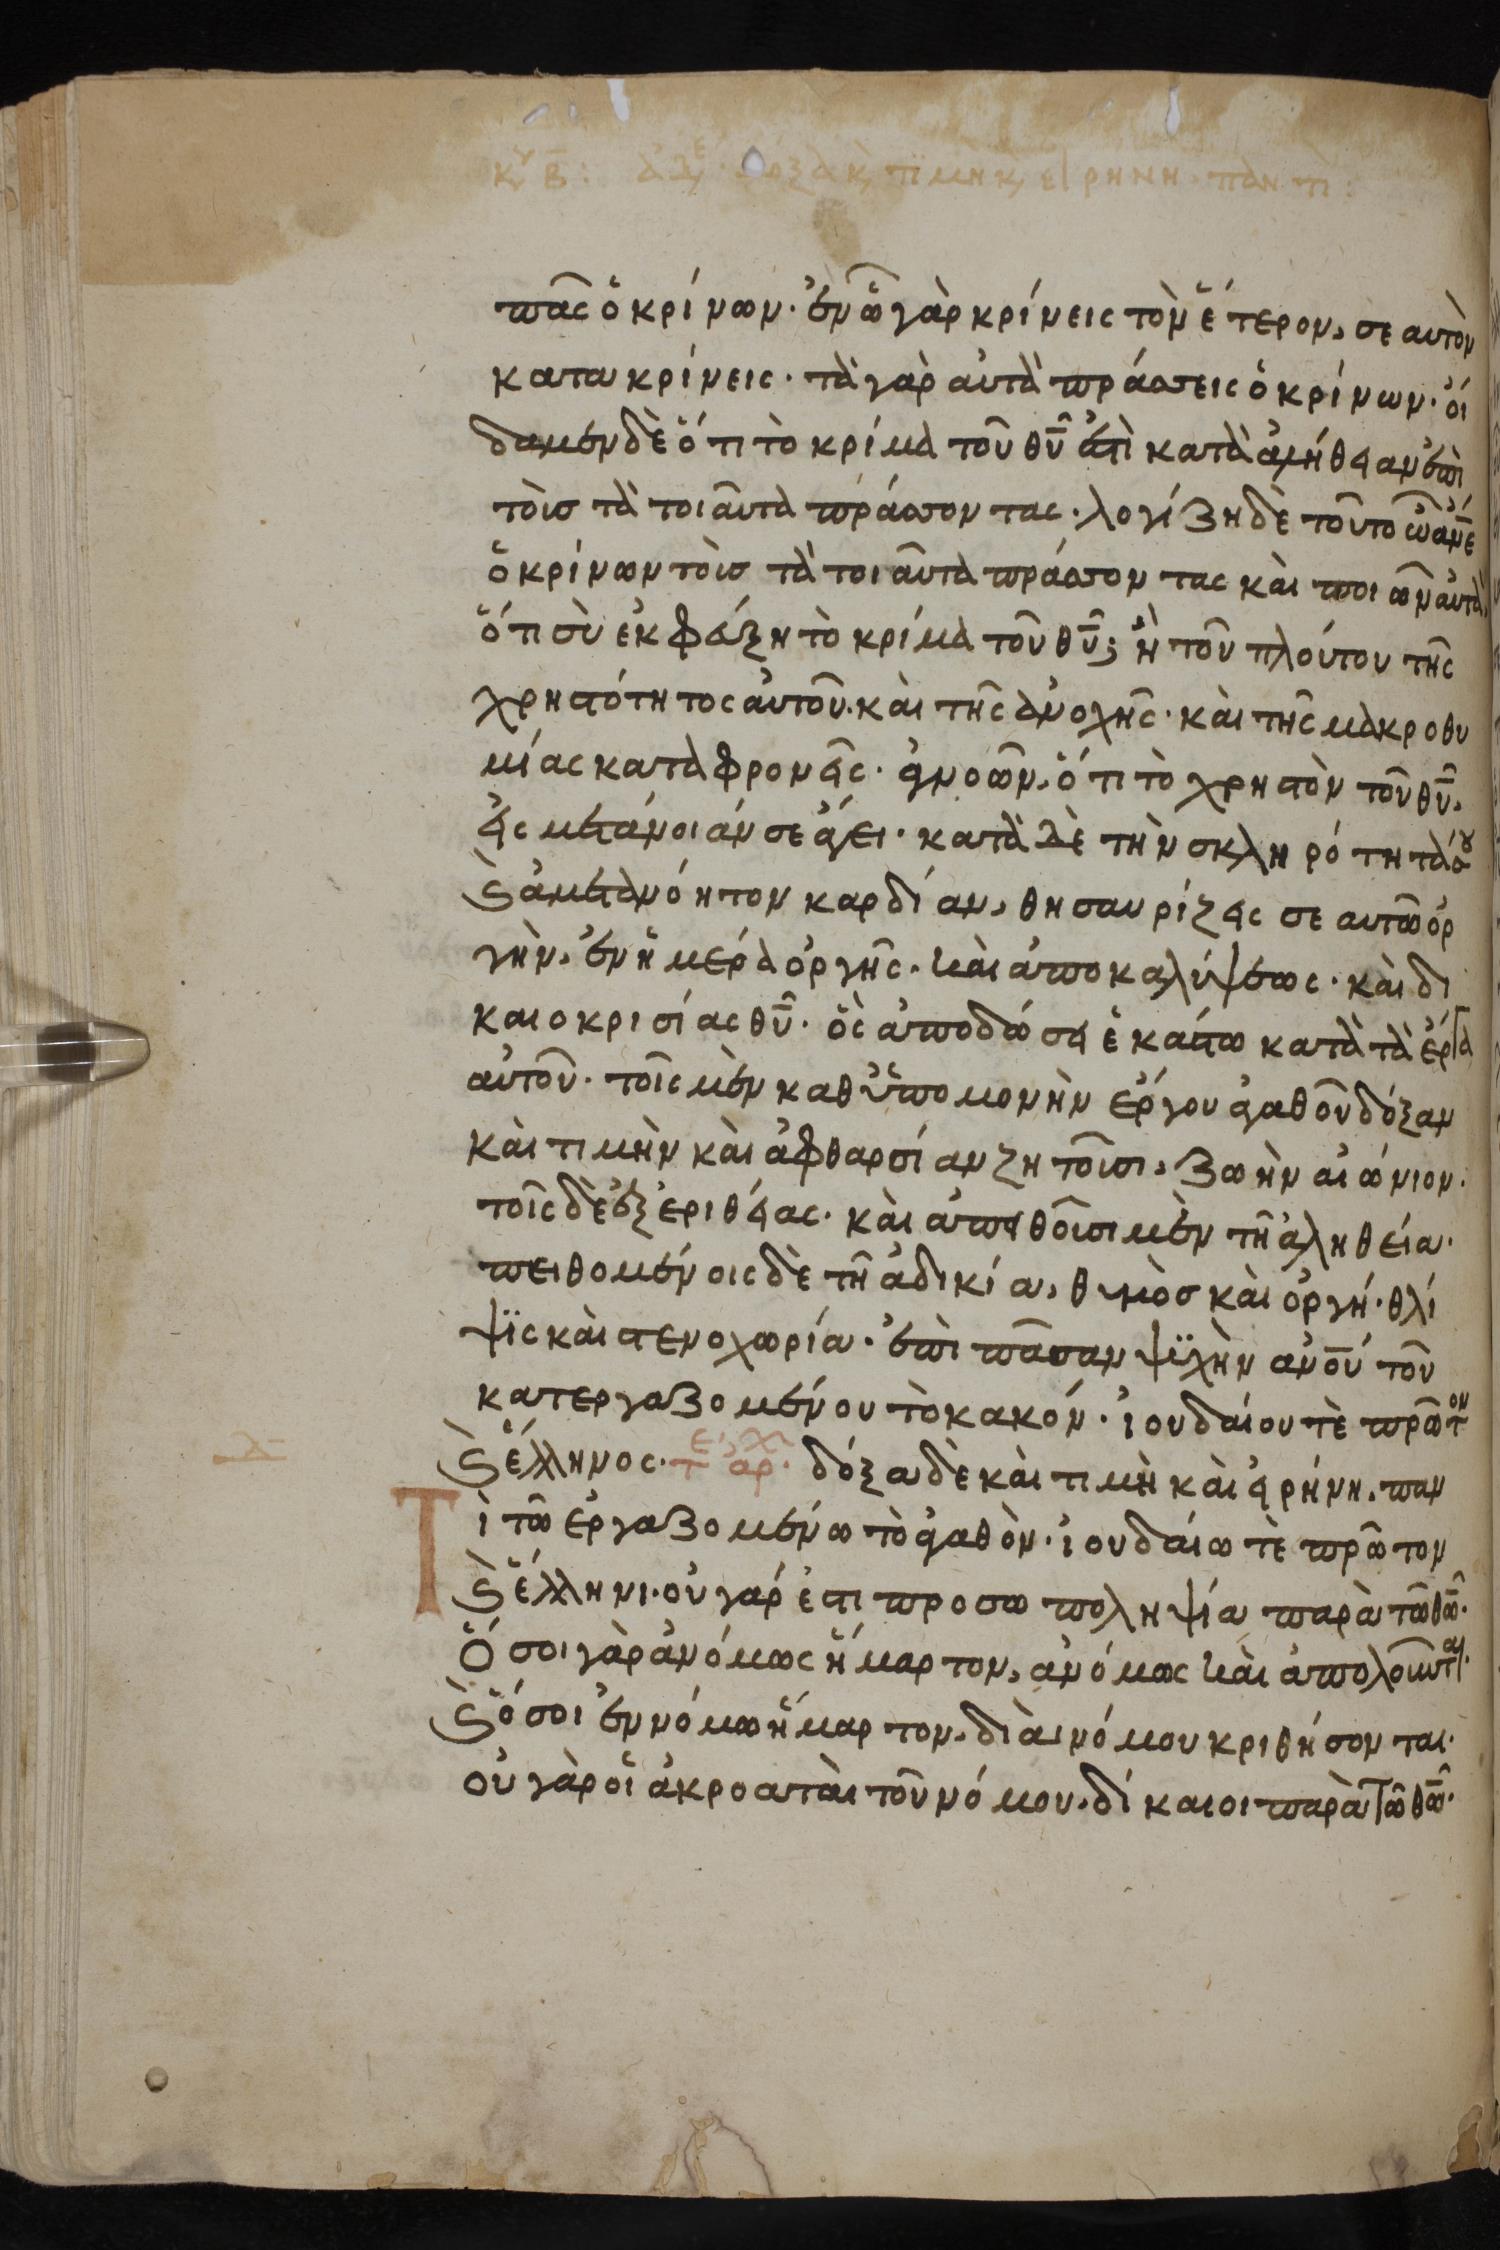 κυ β: ἀδε δόξα κ τιμὴ κ εἰρήνη παντὶ:
πᾶς ὁ κρίνων· ἐν ᾧ γὰρ κρίνεις τὸν ἕτερον, σεαυτὸν
κατακρίνεις· τὰ γὰρ αὐτὰ πράσσεις ὁ κρίνων· οἴ
δαμεν δὲ ὅτι τὸ κρίμα τοῦ θυ ἐστὶ κατὰ ἀλήθειαν ἐπὶ
τοὺς τὰ τοιαῦτα πράσσοντας· λογίζη δὲ τοῦτο ὦ ανε
ὁ κρίνων τοὺς τὰ τοιαῦτα πράσσοντας καὶ ποιῶν αὐτὰ,
ὅτι σὺ ἐκφεύξη τὸ κρίμα τοῦ θυ; ἢ τοῦ πλούτου τῆς
χρηστότητος αὐτοῦ. καὶ τῆς ἀνοχῆς· καὶ τῆς μακροθυ
μίας καταφρονεῖς· ἀγνοῶν, ὅτι τὸ χρηστὸν τοῦ θυ,
εἰς μετάνοιάν σε ἄγει· κατὰ δὲ τὴν σκληρότητά σου
καὶ ἀμετανόητον καρδίαν, θησαυρίζεις σεαυτῶ ὀρ
γὴν, ἐν ἡμέρα ὀργῆς· καὶ ἀποκαλύψεως· καὶ δι
καιοκρισίας θυ· ὃς ἀποδώσει ἑκάστω κατὰ τὰ ἔργα
αὐτοῦ· τοῖς μὲν καθ ὑπομονὴν ἔργου ἀγαθοῦ δόξαν
καὶ τιμὴν καὶ ἀφθαρσίαν ζητοῦσι, ζωὴν αἰώνιον·
τοῖς δὲ ἐξ ἐριθείας· καὶ ἀπειθοῦσι μὲν τῆ ἀληθεία·
πειθομένοις δὲ τῆ ἀδικία, θυμὸς καὶ ὀργή· θλί
ψις καὶ στενοχωρία· ἐπὶ πᾶσαν ψυχὴν ανου τοῦ
κατεργαζομένου τὸ κακόν· ἰουδαίου τὲ πρῶτον
καὶ ἕλληνος· τε αρχ· δόξα δὲ καὶ τιμὴ καὶ εἰρήνη, παν
Τὶ τῶ ἐργαζομένω τὸ ἀγαθὸν· ἰουδαίω τὲ πρῶτον
καὶ ἕλληνι· οὐ γάρ ἐστι προσωποληψία παρὰ τῶ θω·
Ὅσοι γὰρ ἀνόμως ἥμαρτον, ἀνόμως καὶ ἀπολοῦνται·
καὶ ὅσοι ἐν νόμω ἥμαρτον, διὰ νόμου κριθήσονται·
οὐ γὰρ οἱ ἀκροαταὶ τοῦ νόμου, δίκαιοι παρὰ τῶ θω·